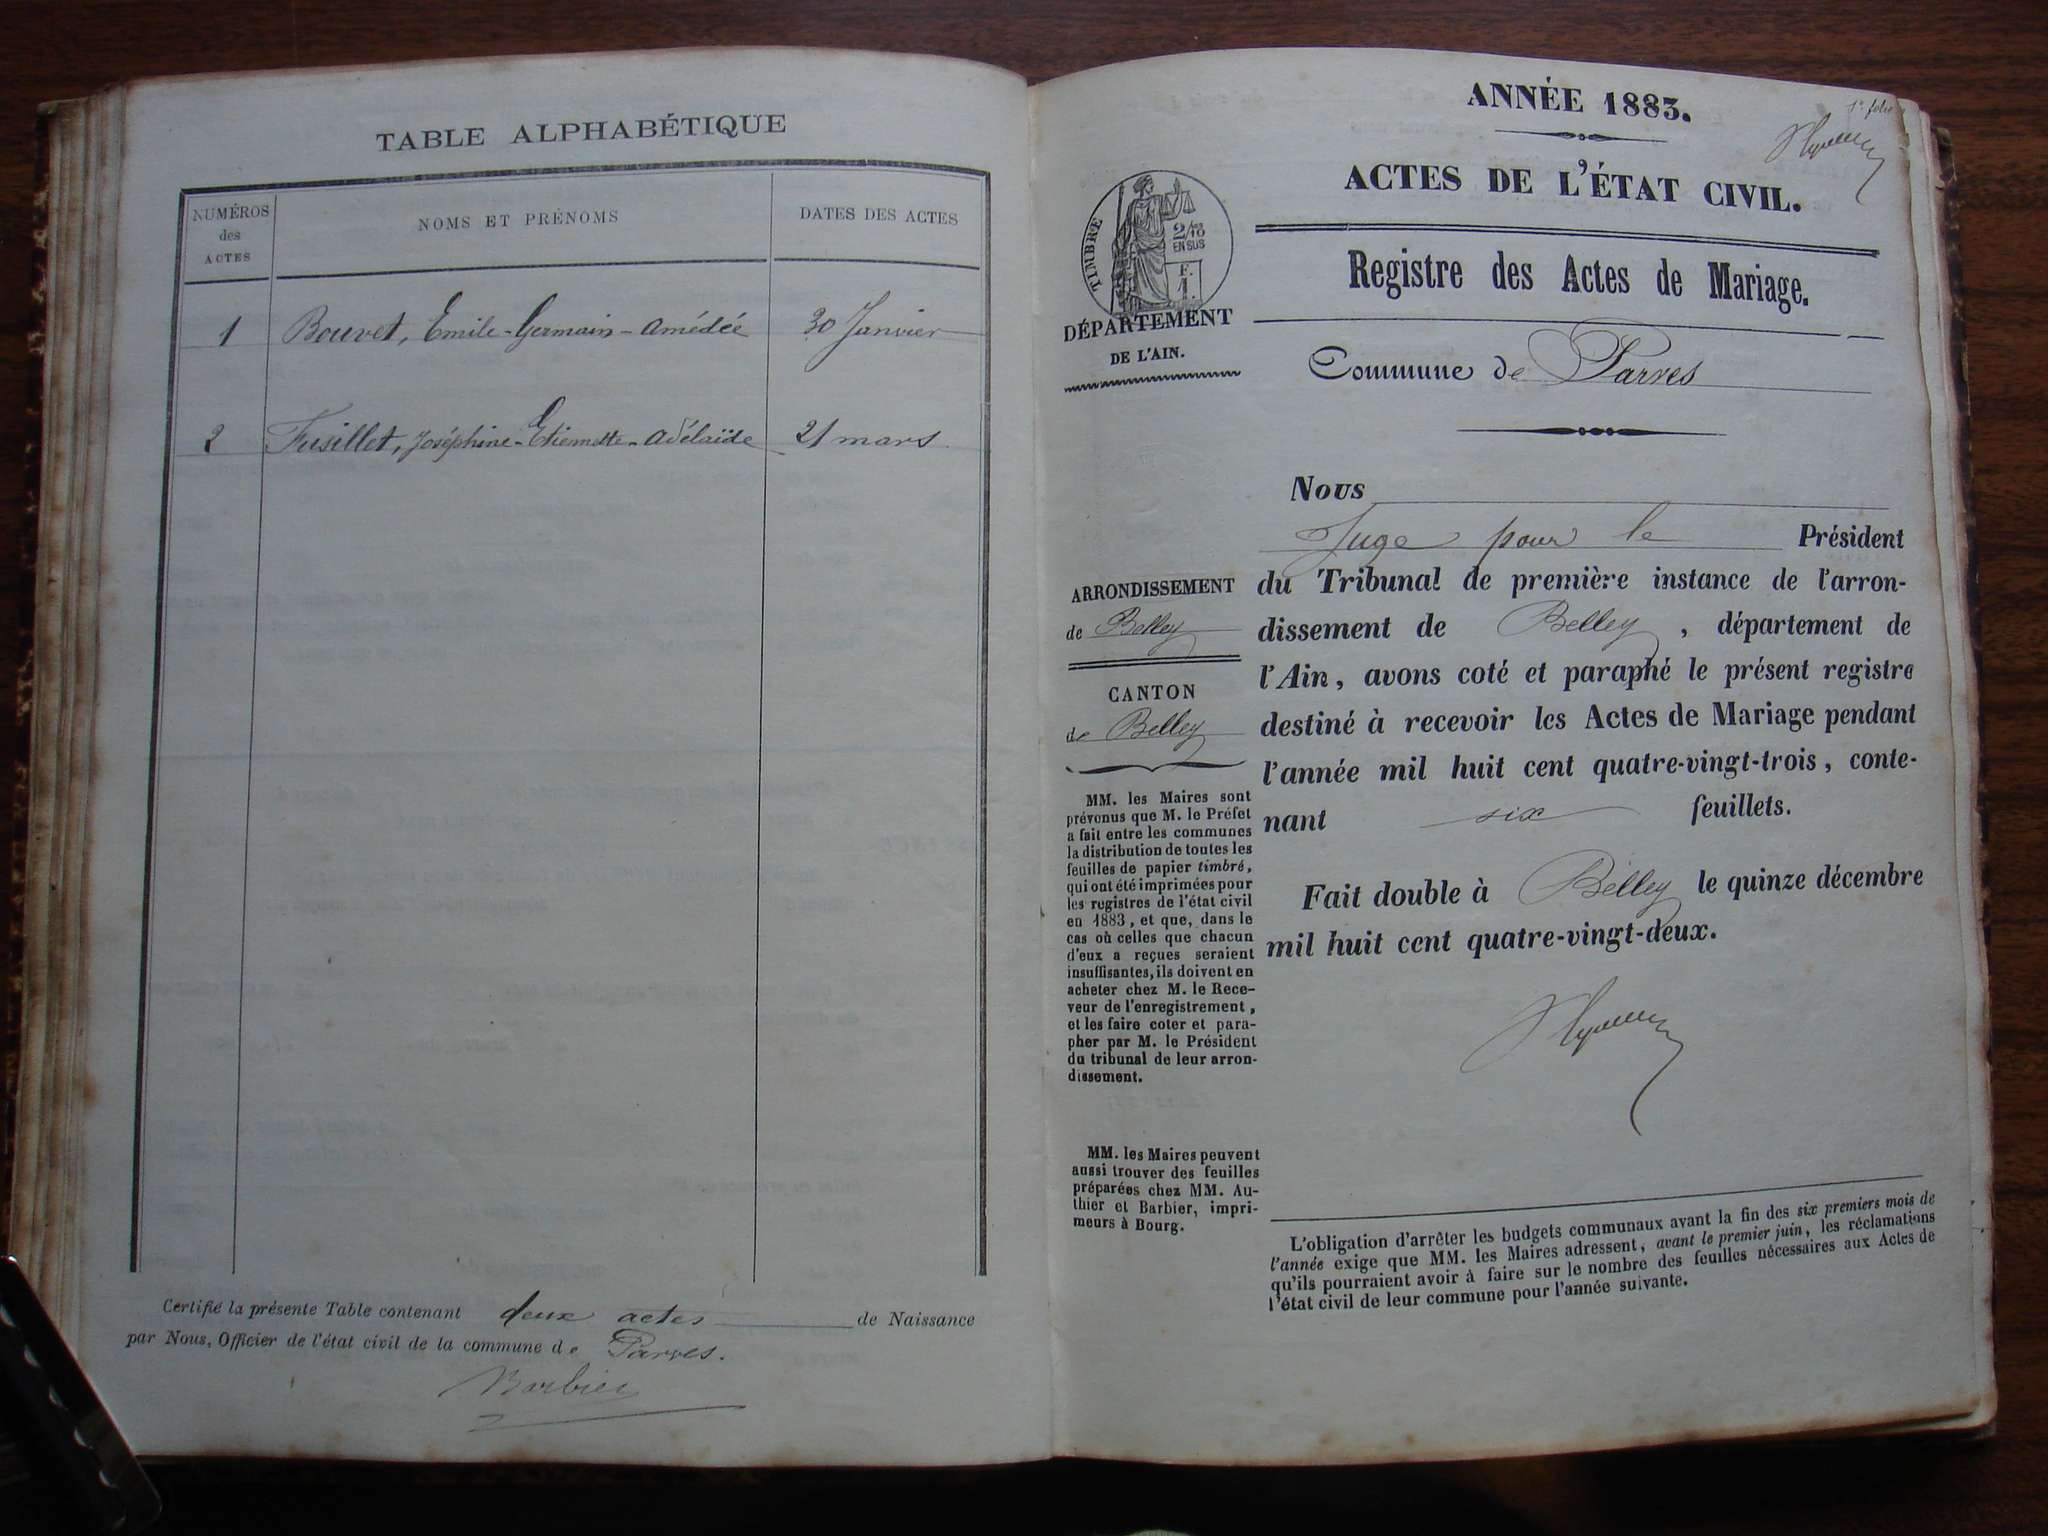 TABLE ALPHABÉTIQUE
NUMÉROS
des
ACTES
NOMS ET PRÉNOMS
DATES DES ACTES
1 Bouvet, Emile-Germain-Amédée 30 Janvier
2 Fusillet, Joséphine-Etiennette-Adélaïde 21 mars
Certifié la présente Table contenant deux actes de Naissance
par Nous, Officier de l'état civil de la commune de Parves.
Barbier
1er folio
ANNÉE 1883.
ACTES DE L'ÉTAT CIVIL.
Registre des Actes de Mariage.
Commune de Parves
TIMBRE
2/10
EN SUS
F.
1.
DÉPARTEMENT
DE L'AIN.
ARRONDISSEMENT
de Belley
CANTON
de Belley
MM. les Maires sont
prévenus que M. le Préfet
a fait entre les communes
la distribution de toutes les
feuilles de papier timbré,
qui ont été imprimées pour
les registres de l'état civil
en 1883, et que, dans le
cas où celles que chacun
d'eux a reçues seraient
insuffisantes, ils doivent en
acheter chez M. le Rece-
veur de l'enregistrement,
et les faire coter et para-
pher par M. le Président
du tribunal de leur arron-
dissement.
MM. les Maires peuvent
aussi trouver des feuilles
préparées chez MM. Au-
thier et Barbier, impri-
meurs à Bourg.
Nous
Juge pour le Président
du Tribunal de première instance de l'arron-
dissement de Belley, département de
l'Ain, avons coté et paraphé le présent registre
destiné à recevoir les Actes de Mariage pendant
l'année mil huit cent quatre-vingt-trois, conte-
nant six feuillets.
Fait double à Belley le quinze décembre
mil huit cent quatre-vingt-deux.
L'obligation d'arrêter les budgets communaux avant la fin des six premiers mois de
l'année exige que MM. les Maires adressent, avant le premier juin, les réclamations
qu'ils pourraient avoir à faire sur le nombre des feuilles nécessaires aux Actes de
l'état civil de leur commune pour l'année suivante.